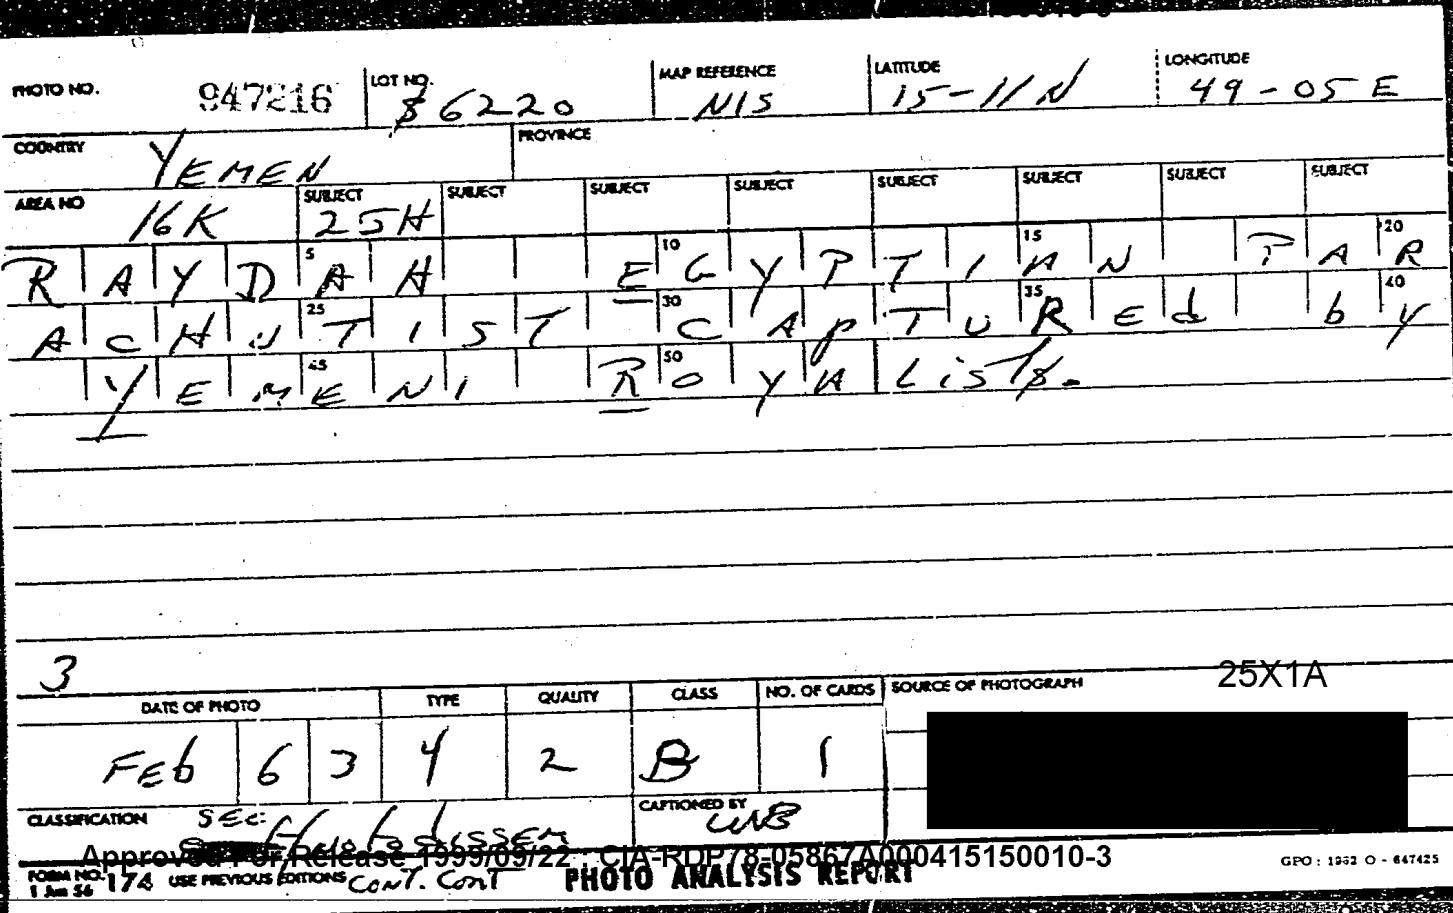 PHOTO NO. 947216 LOT NO. $6220 MAP REFERENCE NIS LATITUDE 15-11N LONGITUDE 49-05E
COUNTRY YEMEN PROVINCE
AREA NO 16K SUBJECT 25H SUBJECT SUBJECT SUBJECT SUBJECT SUBJECT SUBJECT SUBJECT
5 10 15 20
RAYDAH EGYPTIAN PAR
25 30 35 40
ACHUTIST CApTUREd by
45 50
YEMENI ROYALists.
3
25X1A
DATE OF PHOTO TYPE QUALITY CLASS NO. OF CARDS SOURCE OF PHOTOGRAPH
FEb 6 3 4 2 B 1
CLASSIFICATION SEC: CAPTIONED BY
Approved For Release 1999/09/22 : CIA-RDP78-05867A000415150010-3
FORM NO. 174 USE PREVIOUS EDITIONS CONT. CONT PHOTO ANALYSIS REPORT GPO : 1962 O - 647425
1 Jun 56